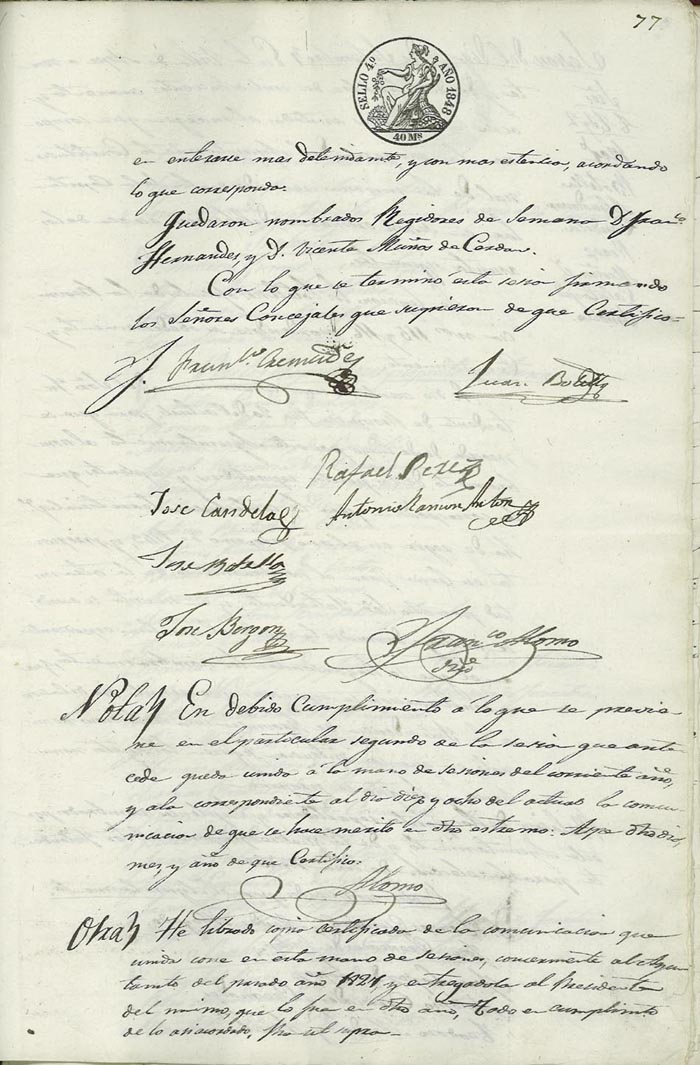 77
SELLO 4º AÑO 1848
40 Ms
en enterarse mas detenidamte, y con mas estencion, acordando
lo que corresponda.
Quedaron nombrados Regidores de Semana D. Franco
Hernandes, y D. Vicente Muños de Cerdan.
Con lo que se terminó esta sesion firmando
los Señores Concejales que supieron de que Certifico
Juan Botella
Rafael Perez
Jose Candela
Antonio Ramon Anton
Jose Botella
Jose Bergon
Franco Alomo
Srio
Nota En debido Cumplimiento á lo que se previe
ne en el particular segundo de la sesion que ante
cede queda unida á la mano de sesiones del corriente año,
y ala correspondiente al dia diez y ocho del actual la comu
nicacion de que se hace merito en dho estremo. Aspe dho dia,
mes, y año de que Certifico.
Alomo
Otra He librado copia certificada de la comunicacion que
unida corre en esta mano de Sesiones, concerniente al Ayun
tamto del pasado año 1821, y entregadola al Presidente
del mismo, que lo fue en dho año, todo en cumplimto
de lo asi acordado, fha ut supra